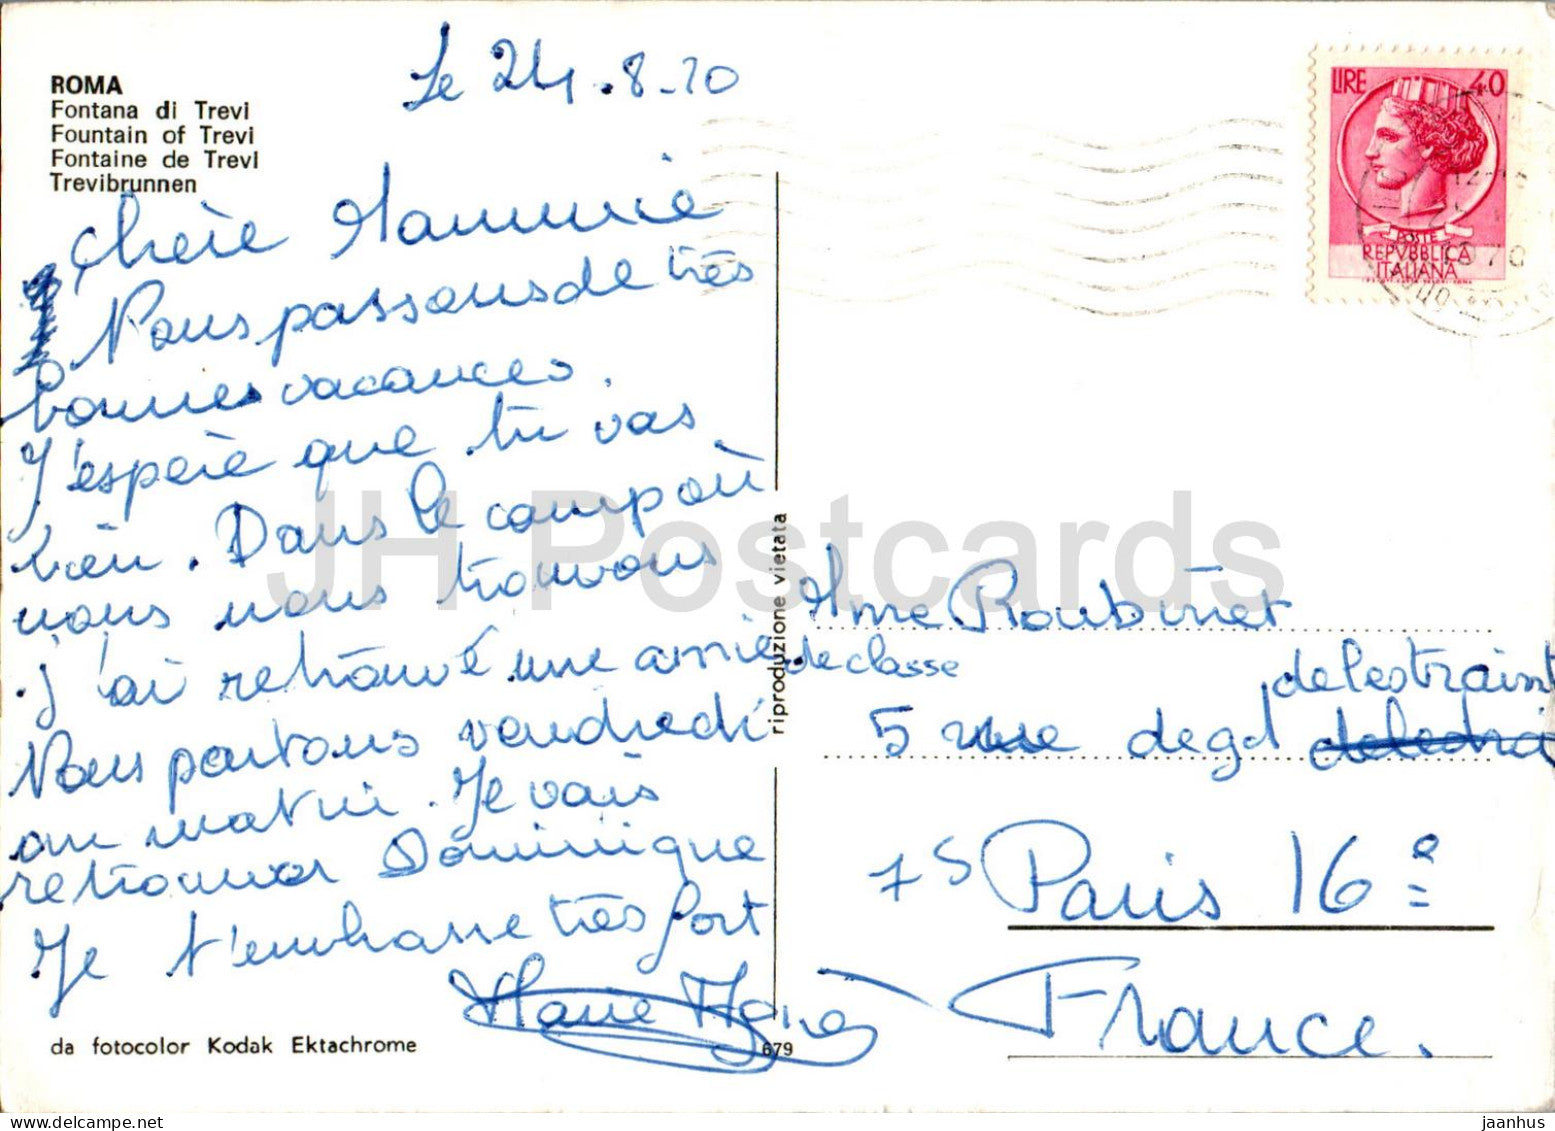 ROMA
Fontana di Trevi
Fountain of Trevi
Fontaine de Trevi
Trevibrunnen
Le 24.8.70
Chère Mammie
Nous passons de très
bonnes vacances.
J'espère que tu vas
bien. Dans le camp où
nous nous trouvons
j'ai retrouvé une amie de classe
Nous partons vendredi
au matin. Je vais
retrouver Dominique
Je t'embrasse très fort
Marie
da fotocolor Kodak Ektachrome
679
riproduzione vietata
LIRE 40
POSTE
REPVBBLICA
ITALIANA
1970
Mme Roubinet
delestraint
5 rue de gd
75 Paris 16e
France.
JH Postcards
jaanhus